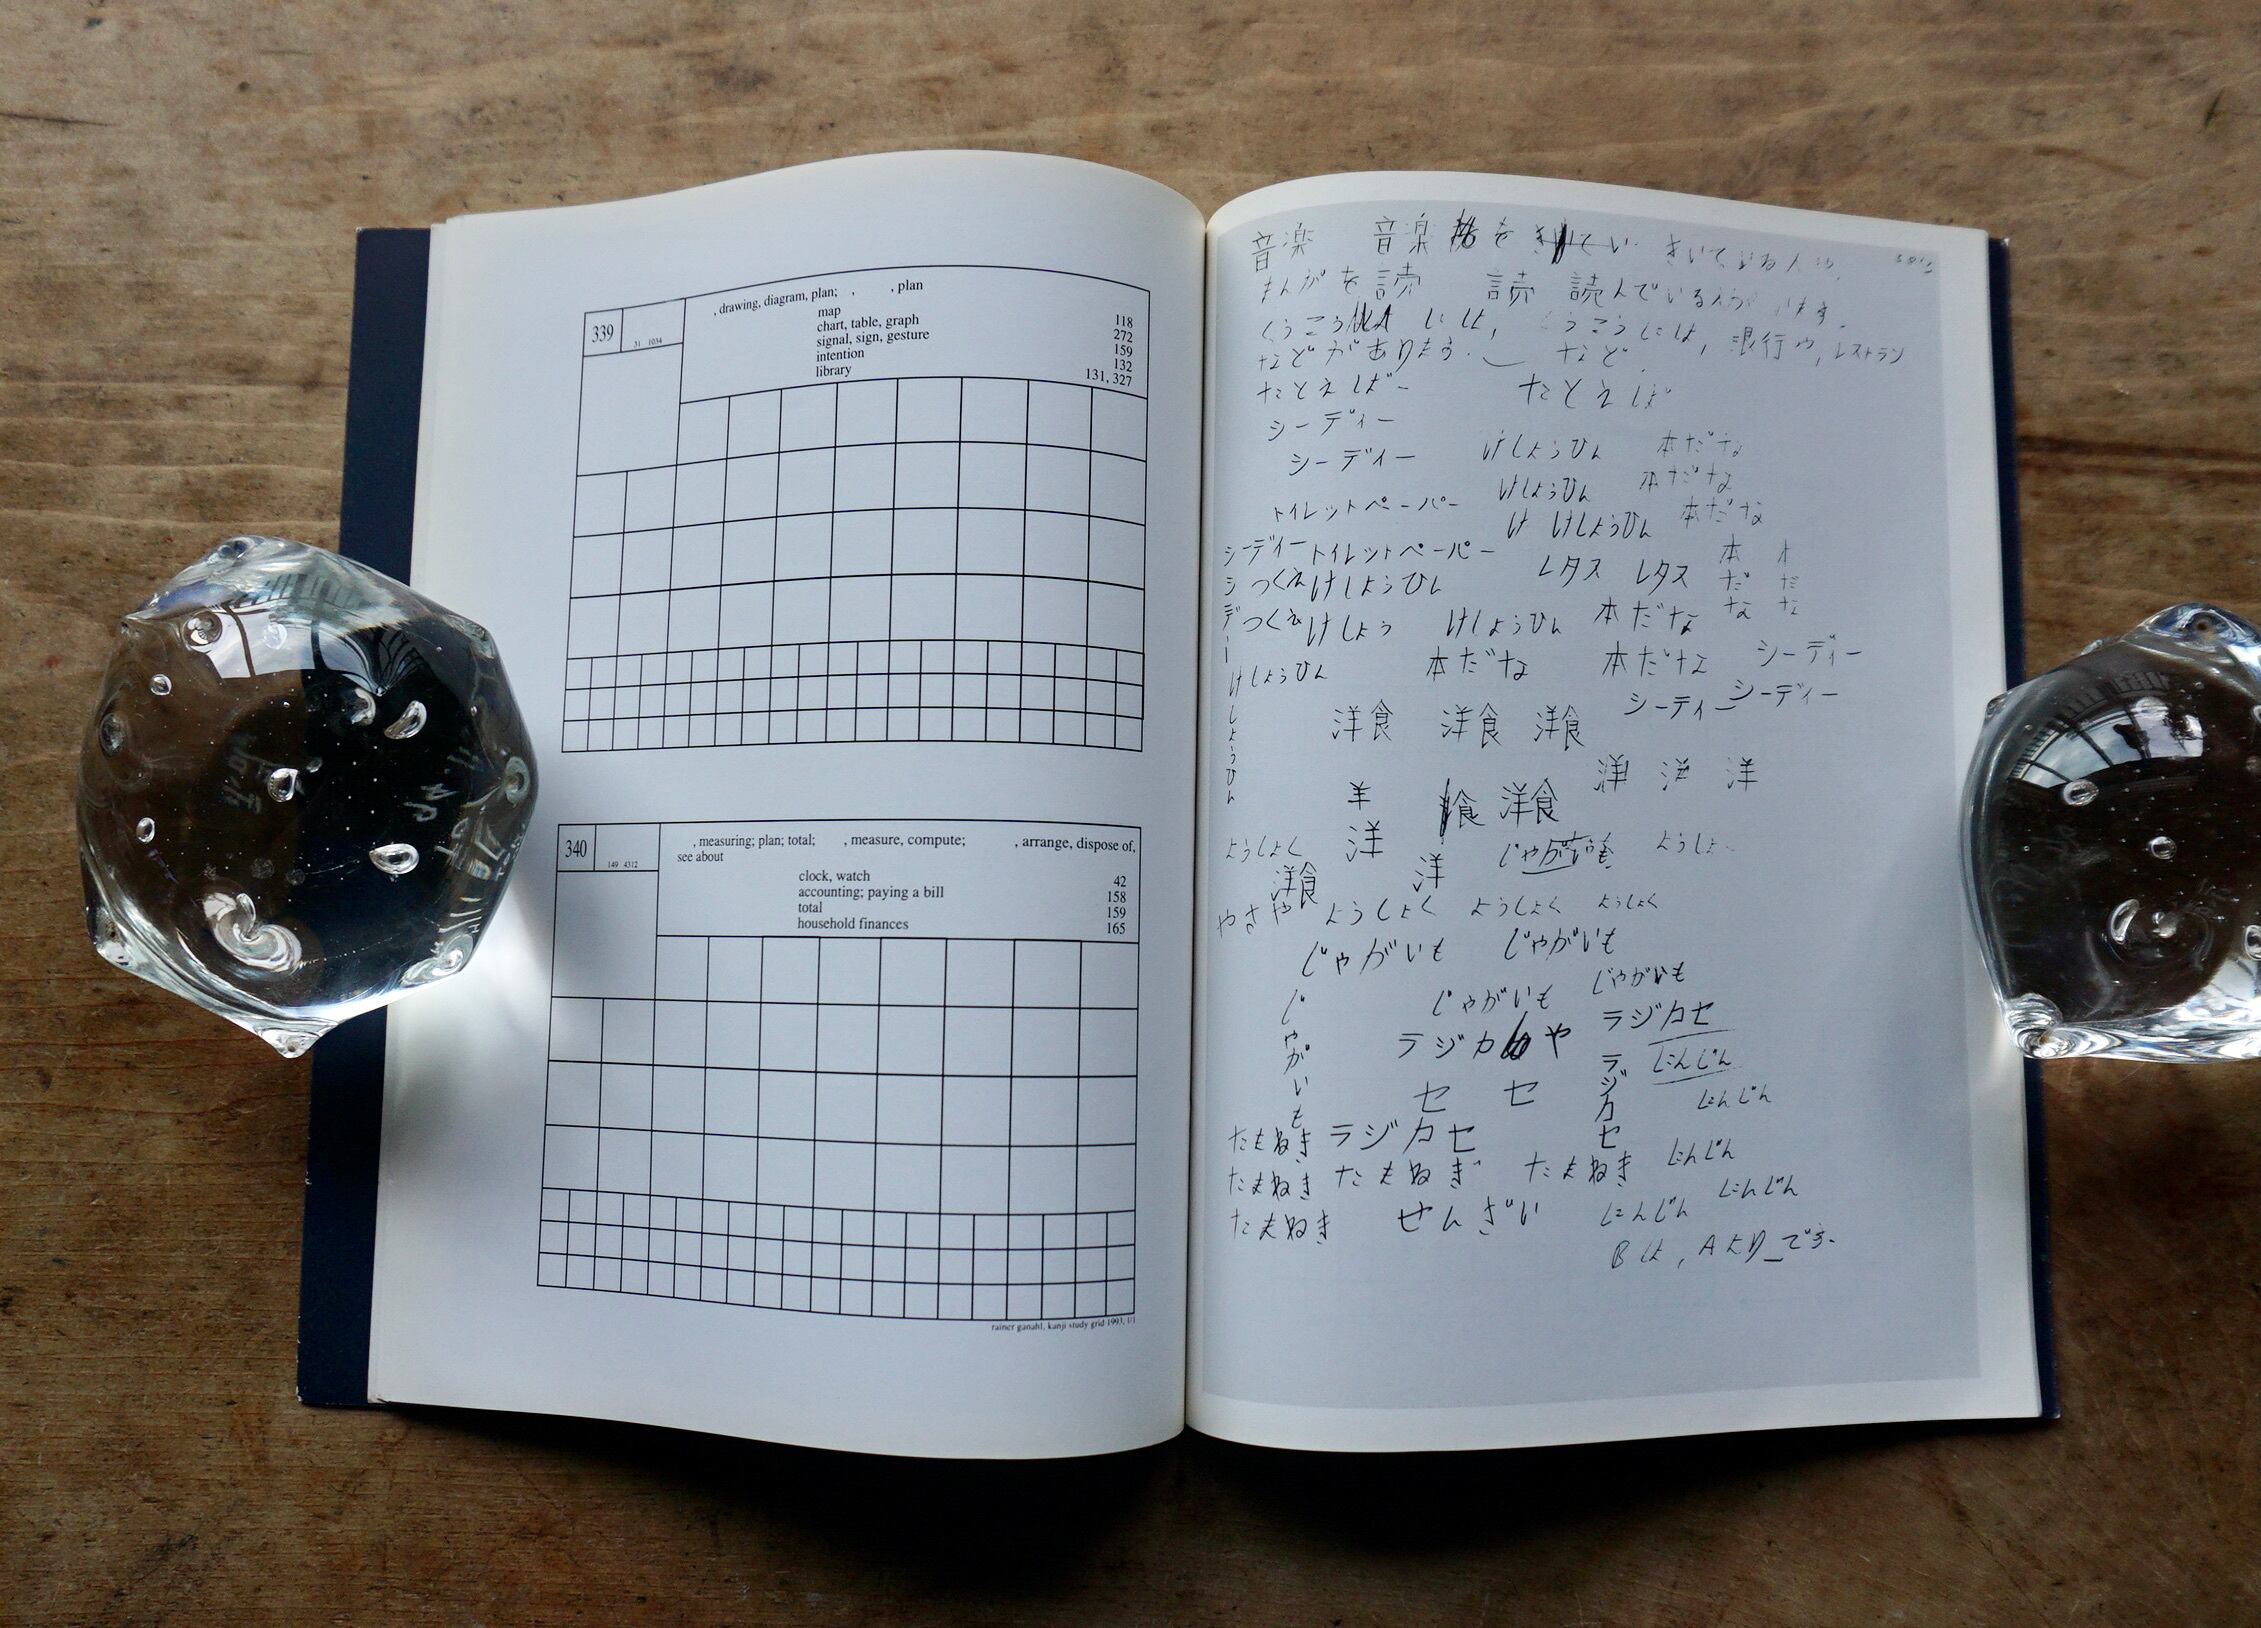 339
31 1034
, drawing, diagram, plan; , , plan
map 118
chart, table, graph 272
signal, sign, gesture 159
intention 132
library 131, 327
340
149 4312
, measuring; plan; total; , measure, compute; , arrange, dispose of,
see about
clock, watch 42
accounting; paying a bill 158
total 159
household finances 165
rainer ganahl, kanji study grid 1993, 1/1
音楽 音楽 を きいている人や
まんがを読 読 読んでいる
くうこう には, くうこうには, 銀行や, レストラン
などがあります. など
たとえば たとえば
シーディー
シーディー けしょうひん 本だな
けしょうひん 本だな
トイレットペーパー け けしょうひん 本だな
シーディー トイレットペーパー レタス レタス 本だな
つくえ けしょうひん
つくえ けしょう けしょうひん 本だな
けしょうひん 本だな 本だな シーディー
しょうひん
洋食 洋食 洋食 シーディー シーディー
洋 洋 洋
羊 食 洋食
ようしょく 洋 じゃがいも ようしょ
洋食 洋
やさや ようしょく ようしょく ようしょく
じゃがいも じゃがいも
じゃがいも じゃがいも じゃがいも
ラジカ や ラジカセ
ラジカセ にんじん
セ セ にんじん
たまねき ラジカセ
たまねき たまねぎ たまねき にんじん
たまねき せんざい にんじん にんじん
Bは, Aより_です.